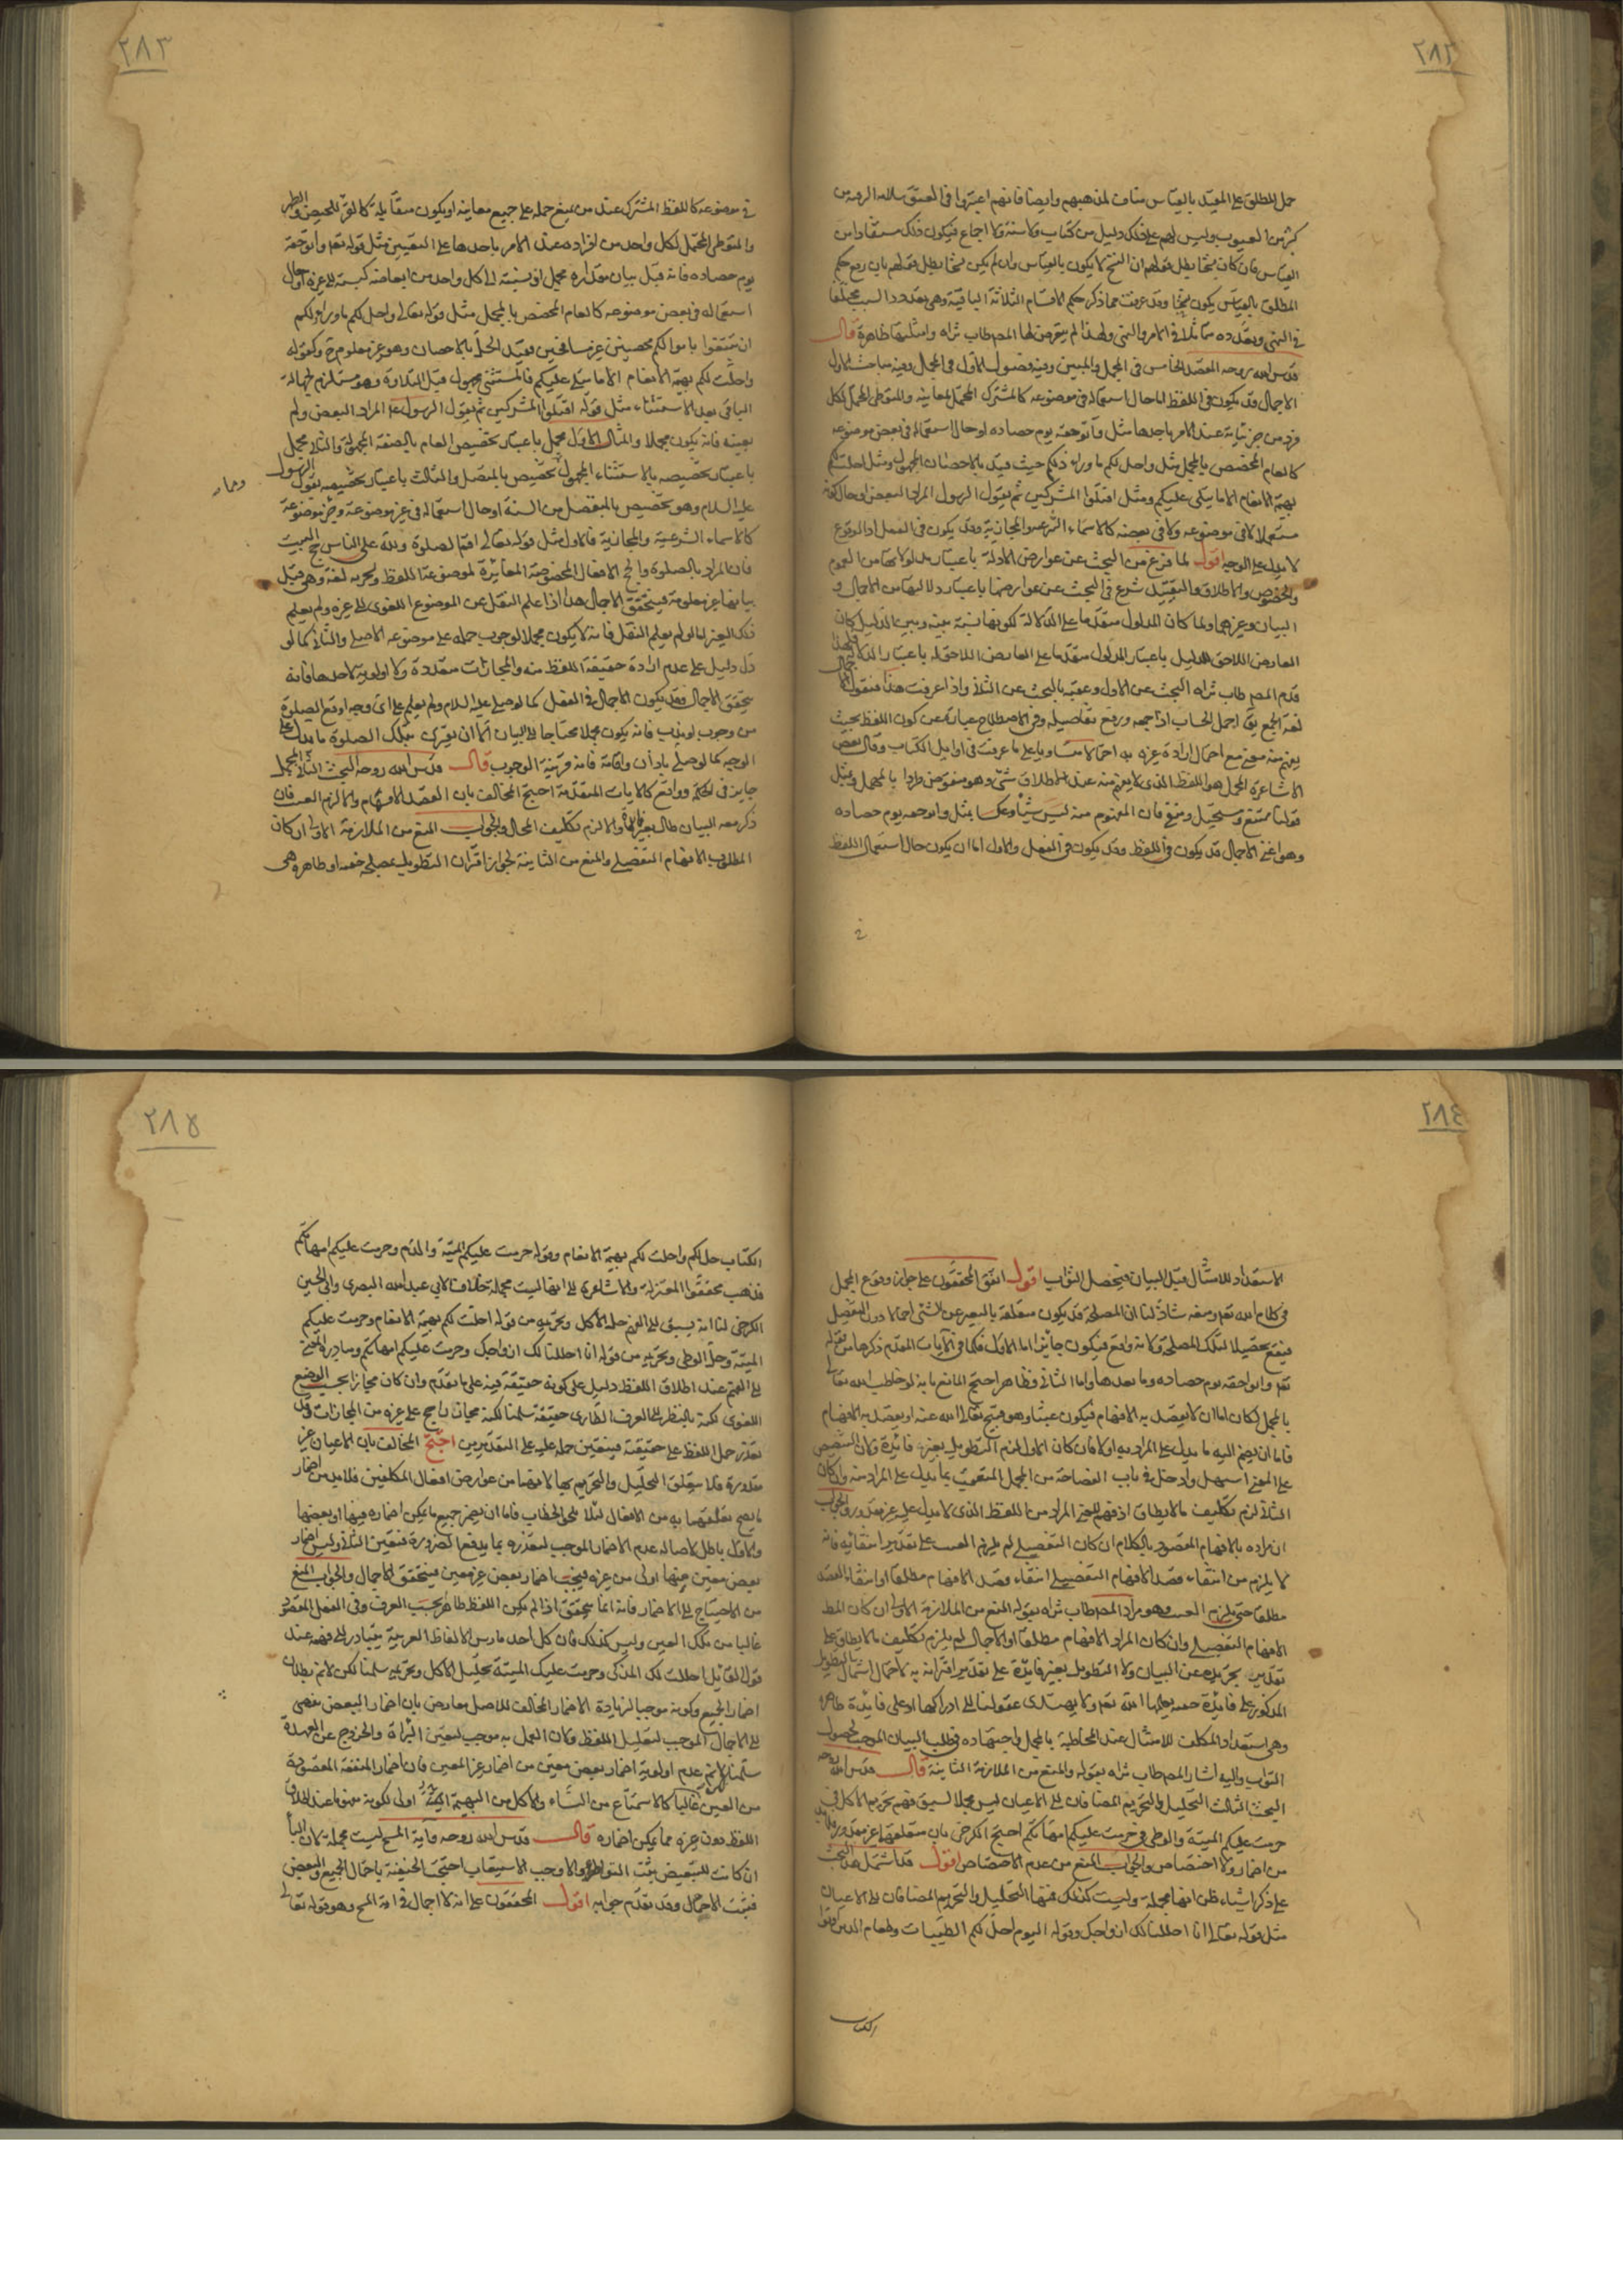 ٢٨٢
حمل المطلق على المقيد بالقياس مناف لمذهبهم وايضا فانهم اعتبروا في العتق سلامة الرقبة من
كثير من العيوب وليس لهم على ذلك دليل من كتاب ولا سنة ولا اجماع فيكون ذلك مستفادا من
القياس فان كان نسخا بطل قولهم ان النسخ لا يكون بالقياس وان لم يكن نسخا بطل قولهم بان رفع حكم
المطلق بالقياس يكون نسخا وقد عرفت مما ذكر حكم الاقسام الثلاثة الباقية وهي تعدد السبب مختلفا
في النهي وتعدده متماثلا في الامر والنهي ولهذا لم يتعرض لها المصطاب ثراه وامثلتها ظاهرة قال
قدس الله روحه المقصد الخامس في المجمل والمبين وفيه فصول الاول في المجمل وفيه مباحث الاول
الاجمال قد يكون في اللفظ اما حال استعماله في موضوعه كالمشترك المحتمل لمعانيه والمتواطئ المحتمل لكل
فرد من جزئياته عند الامر باحدها مثل وآتوا حقه يوم حصاده او حال استعماله في بعض موضوعه
كالعام المخصص بالمجمل مثل واحل لكم ما وراء ذلكم حيث قيد بالاحصان المجهول ومثل احلت لكم
بهيمة الانعام الا ما يتلى عليكم ومثل اقتلوا المشركين ثم يقول الرسول المراد البعض او حال كونه
مستعملا لا في موضوعه ولا في بعضه كالاسماء الشرعية والمجازية وقد يكون في الفعل اذ الوقوع
لا يدل على الوجه اقول لما فرغ من البحث عن عوارض الادلة باعتبار مدلولاتها من العموم
والخصوص والاطلاق والتقييد شرع في البحث عن عوارضها باعتبار دلالتها من الاجمال و
البيان وغيرهما ولما كان المدلول متقدما على الدلالة لكونها نسبة بينه وبين الدليل كان
العارض اللاحق للدليل باعتبار المدلول متقدما على العارض اللاحق له باعتبار الدلالة فلهذا
قدم المصطاب ثراه البحث عن الاول وعقبه بالبحث عن الثاني واذا عرفت هذا فنقول الاجمال
لغة الجمع يق اجمل الحساب اذا جمعه ورفع تفاصيله وفي الاصطلاح عبارة عن كون اللفظ بحيث
يفهم منه معنى مع احتمال ارادة غيره به احتمالا متساويا على ما عرفت في اوايل الكتاب وقال بعض
الاشاعرة المجمل هو اللفظ الذي لا يفهم منه عند الاطلاق شئ وهو منقوض طردا بالمهمل وبمثل
قولنا ممتنع ومستحيل ومنفي فان المفهوم منه ليس شيئا وعكسا بمثل وآتوا حقه يوم حصاده
وهو اعني الاجمال قد يكون في اللفظ وقد يكون في الفعل والاول اما ان يكون حال استعمال اللفظ
في
٢٨٣
في موضوعه كاللفظ المشترك عند من يمنع حمله على جميع معانيه او يكون متقابلة كالقرء للحيض والطهر
والمتواطئ المحتمل لكل واحد من افراده عند الامر باحدها على التعيين مثل قوله تعم وآتوا حقه
يوم حصاده فانه قبل بيان مقداره مجمل اذ نسبته الى كل واحد من ابعاضه كنسبته الى غيره او حال
استعماله في بعض موضوعه كالعام المخصص بالمجمل مثل قوله تعالى واحل لكم ما وراء ذلكم
ان تبتغوا باموالكم محصنين غير مسافحين فقيد الحل بالاحصان وهو غير معلوم ح وكقوله
واحلت لكم بهيمة الانعام الا ما يتلى عليكم فالمستثنى مجهول قبل التلاوة وهو مستلزم لجهالة
الباقي بعد الاستثناء مثل قوله اقتلوا المشركين ثم يقول الرسول المراد البعض ولم
يعينه فانه يكون مجملا والمثال الاول مجمل باعتبار تخصيص العام بالصفة المجهولة والثاني مجمل
باعتبار تخصيصه بالاستثناء المجهول تخصيص بالمتصل والثالث باعتبار تخصيصه بقول الرسول
عليه السلام وهو تخصيص بالمنفصل من السنة او حال استعماله في غير موضوعه وجزء موضوعه
كالاسماء الشرعية والمجازية فالاول مثل قوله تعالى اقم الصلوة ولله على الناس حج البيت
فان المراد بالصلوة والحج الافعال المخصوصة المغايرة لموضوعة اللفظ لغة وهي قبل
بيانها غير معلومة فيتحقق الاجمال هذا اذا علم النقل عن الموضوع اللغوي الى غيره ولم يعلم
ذلك الغير اما لو لم يعلم النقل فانه لا يكون مجملا لوجوب حمله على موضوعه الاصلي والثاني كما لو
دل دليل على عدم ارادة حقيقة اللفظ منه والمجازات متعددة ولا اولوية لاحدها فانه
يتحقق الاجمال وقد يكون الاجمال في الفعل كما لو صلى عليه السلام ولم يعلم على اي وجه اوقع الصلوة
من وجوب او ندب فانه يكون مجملا محتاجا الى البيان الا ان يقترن بتلك الصلوة ما يدل على
الوجه كما لو صلى باذان واقامة فانه قرينة الوجوب قال قدس الله روحه البحث الثاني المجمل
جايز في الحكمة وواقع كالايات المتقدمة احتج المخالف بان القصد الافهام والا لزم العبث فان
ذكر معه البيان طال بغير فائدة والا لزم تكليف المحال والجواب المنع من الملازمة الاولى ان كان
المطلوب الافهام التفصيلي والمنع من الثانية لجواز اقتران التطويل بمصلحة خفية او ظاهرة وهي
٢٨٤
الاستعداد للامتثال قبل البيان فيحصل الثواب اقول اتفق المحققون على جواز وقوع المجمل
في كلام الله تعم ومنعه شاذ لنا ان المصلحة قد يكون متعلقة بالتعبير عن الشئ اجمالا دون التفصيل
فيقع تحصيلا لتلك المصلحة ولانه واقع فيكون جايزا اما الاول فكما في الآيات المتقدم ذكرها من قوله
تعم وآتوا حقه يوم حصاده وما بعدها واما الثاني فظاهر احتج المانع بانه لو خاطب الله تعالى
بالمجمل لكان اما ان لا يقصد به الافهام فيكون عبثا وهو قبيح تعالى الله عنه او يقصد به الافهام
فاما ان يضم اليه ما يدل على المراد به اولا فان كان الاول لزم التطويل بغير فائدة ولان التنصيص
على المعنى اسهل وادخل في باب الفصاحة من المجمل المتعقب بما يدل على المراد منه وان كان
الثاني لزم تكليف ما لا يطاق اذ فهم المعنى المراد من اللفظ الذي لا يدل عليه غير مقدور والجواب
ان مراده بالافهام المقصود بالكلام ان كان التفصيلي لم يلزم العبث على تقدير انتفائه فانه
لا يلزم من انتفاء قصد الافهام التفصيلي انتفاء قصد الافهام مطلقا او انتفاء القصد
مطلقا حتى يلزم العبث وهو مراد المصطاب ثراه بقوله المنع من الملازمة الاولى ان كان المط
الافهام التفصيلي وان كان المراد الافهام مطلقا او الاجمالي لم يلزم تكليف ما لا يطاق على
تقدير تجريده عن البيان ولا التطويل بغير فائدة على تقدير اقترانه به لاحتمال اشتمال التطويل
المذكور على فائدة خفية يعلمها الله تعم ولا يهتدي عقولنا الى ادراكها او على فائدة ظاهرة
وهي استعداد المكلف للامتثال عند المخاطبة بالمجمل واجتهاده في طلب البيان الموجب لحصول
الثواب واليه اشار المصطاب ثراه بقوله والمنع من الملازمة الثانية قال قدس الله روحه
البحث الثالث التحليل والتحريم المضافان الى الاعيان ليس مجملا لسبق فهم تحريم الاكل في
حرمت عليكم الميتة والوطي في حرمت عليكم امهاتكم احتج الكرخي بان متعلقها غير مقدور فلا بد
من اضمار ولا اختصاص والجواب المنع من عدم الاختصاص اقول قد اشتمل هذا البحث
على ذكر اشياء ظن انها مجملة وليست كذلك فمنها التحليل والتحريم المضافان الى الاعيان
مثل قوله تعالى انا احللنا لك ازواجك وقوله اليوم احل لكم الطيبات وطعام الذين اوتوا
الكتاب
٢٨٥
الكتاب حل لكم واحلت لكم بهيمة الانعام وقوله حرمت عليكم الميتة والدم وحرمت عليكم امهاتكم
فذهب محققوا المعتزلة والاشاعرة الى انها ليست مجملة خلافا لابي عبد الله البصري وابي الحسن
الكرخي لنا انه يسبق الى الفهم حل الاكل وتحريمه من قوله احلت لكم بهيمة الانعام وحرمت عليكم
الميتة وحل الوطي وتحريمه من قوله انا احللنا لك ازواجك وحرمت عليكم امهاتكم ومبادرة المعنى
الى الفهم عند اطلاق اللفظ دليل على كونه حقيقة فيه على ما تقدم وان كان مجازا بحسب الوضع
اللغوي لكنه بالنظر الى العرف الطاري حقيقة سلمنا لكنه مجاز راجح على غيره من المجازات وقد
تعذر حمل اللفظ على حقيقته فيتعين حمله عليه على التقديرين احتج المخالف بان الاعيان غير
مقدورة فلا يتعلق التحليل والتحريم بها لانهما من عوارض افعال المكلفين فلا بد من اضمار
ما يصح تعلقهما به من الافعال لئلا يلغى الخطاب فاما ان يضمر جميع ما يمكن اضماره فيها او بعضها
والاول باطل لاصالة عدم الاضمار الموجب لتقديره بما يدفع الضرورة فتعين الثاني وليس اضمار
بعض معين منها اولى من غيره فيجب اضمار بعض غير معين فيتحقق الاجمال والجواب المنع
من الاحتياج الى الاضمار فانه انما يتحقق اذا لم يكن اللفظ ظاهرا بحسب العرف وفي الفعل المقصود
غالبا من تلك العين وليس كذلك فان كل احد مارس الالفاظ العربية يتبادر الى فهمه عند
قول القائل احللت لك المذكى وحرمت عليك الميتة تحليل الاكل وتحريمه سلمنا لكن لانم بطلان
اضمار الجميع وكونه موجبا لزيادة الاضمار المخالف للاصل معارض بان اضمار البعض يفضي
الى الاجمال الموجب لتعليل اللفظ وكان العمل به موجب لتعين البراءة والخروج عن العهدة
سلمنا لانم عدم اولوية اضمار بعض معين من اضمار غير المعين فان اضمار المنفعة المقصودة
من العين غالبا كالاستمتاع من النساء والاكل من البهيمة اولى لكونه مفهوما عند اطلاق
اللفظ دون غيره مما يمكن اضماره قال قدس الله روحه وآية المسح ليست مجملة لان الباء
ان كانت للتبعيض ثبت التواطؤ والا وجب الاستيعاب احتجت الحنفية باحتمال الجميع والبعض
فيثبت الاجمال وقد تقدم جوابه اقول المحققون على انه لا اجمال في آية المسح وهو قوله تعالى